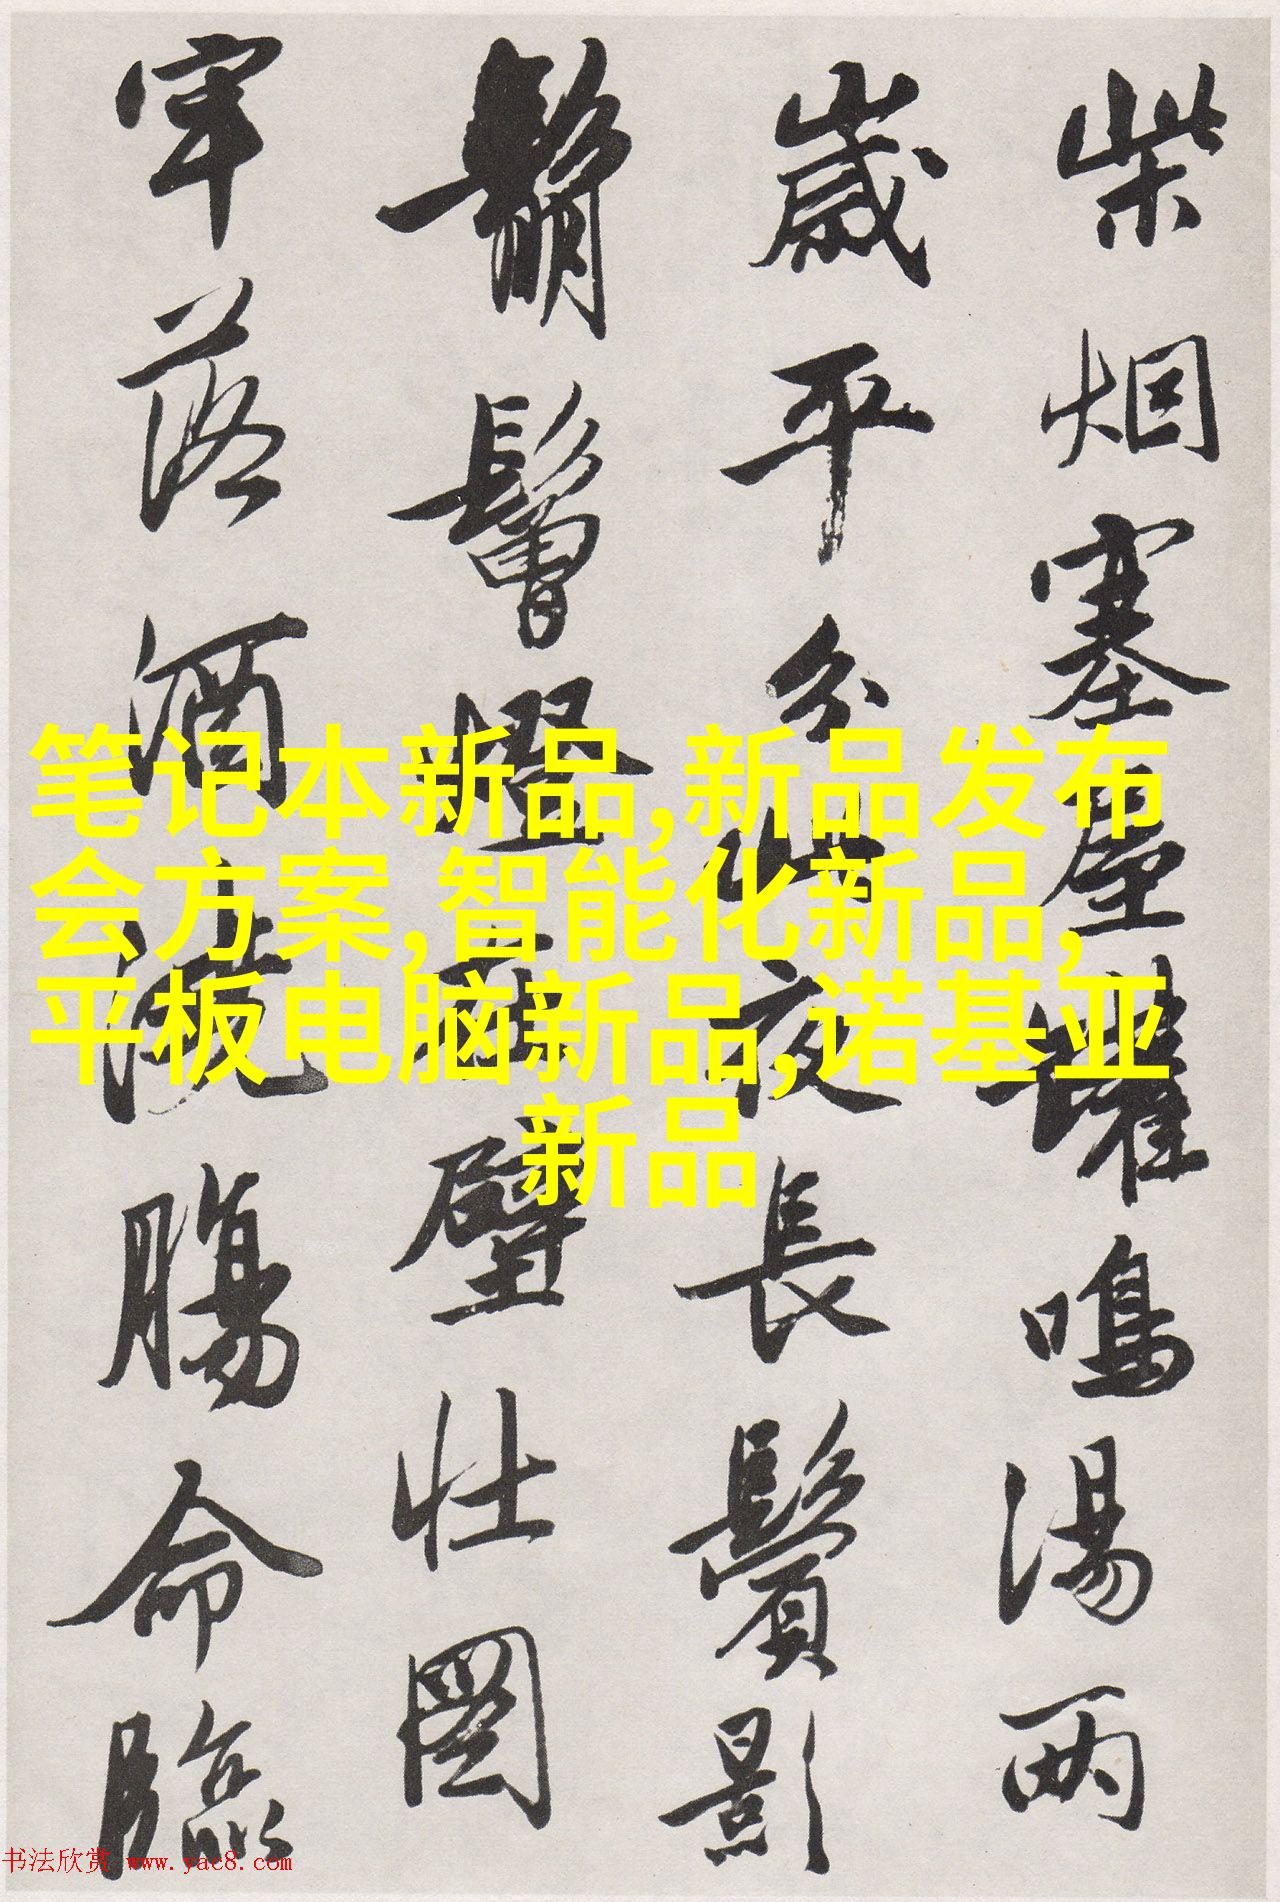 柴烟塞屋罐鳴湯兩
歲平分此夜長鬢影
鬅鬙燈在壁壮圖
牢落酒澆腸命臨
笔记本新品,新品发布
会方案,智能化新品,
平板电脑新品,诺基亚
新品
书法欣赏 www.yac8.com